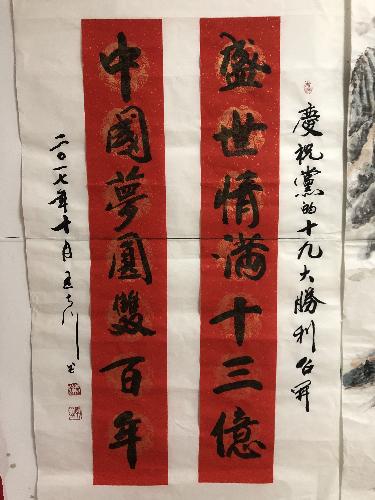 慶祝黨的十九大勝利召開
盛世情滿十三億
中國夢圓雙百年
二〇一七年十月